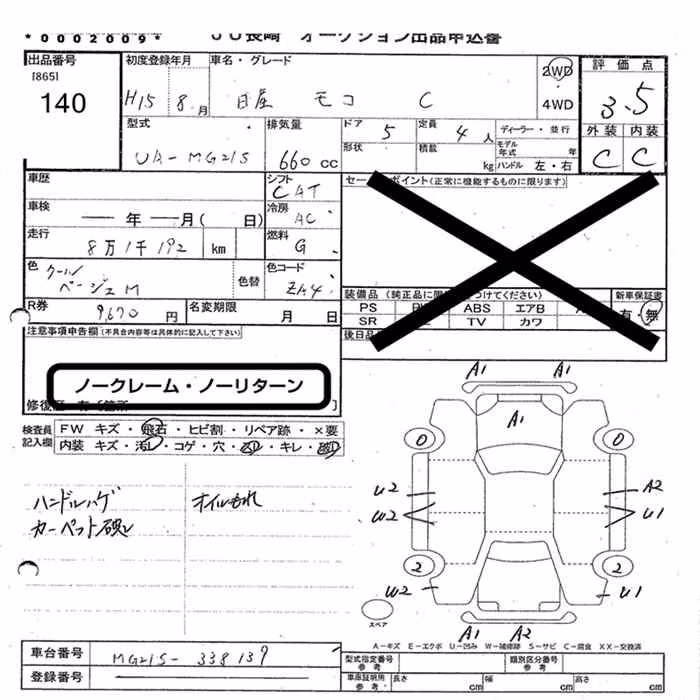 *0002009* JU長崎 オークション出品申込書
出品番号
[865]
140
初度登録年月
H15 8月
車名・グレード
日産 モコ C
2WD
4WD
評価点
3.5
外装 内装
C C
型式
UA-MG21S
排気量
660cc
ドア 5
定員 4人
形状
積載 kg
ディーラー・並行
モデル年式 年
ハンドル 左・右
車歴
シフト
CAT
セールスポイント(正常に機能するものに限ります)
車検
年 月( 日)
冷房
AC
走行
8万1千192 km
燃料
G
色
クール
ベージュM
色替
色コード
ZA4
装備品
PS ABS エアB
SR TV カワ
新車保証書
有・無
R券
9,670円
名変期限
月 日
後日品
注意事項申告欄(不具合内容等は具体的に記入して下さい)
ノークレーム・ノーリターン
修復歴
検査員
記入欄
FW キズ・飛石・ヒビ割・リペア跡・×要
内装 キズ・汚レ・コゲ・穴・・キレ・
ハンドルハゲ
カーペット破レ
オイルもれ
A1 A1
A1
0 0
U2 A2
W2 U1
2 2
W2 U1
A1 A2
スペア
A-キズ E-エクボ U-凹み W-補修跡 S-サビ C-腐食 XX-交換済
車台番号
MG21S-338139
登録番号
型式指定番号
参考
類別区分番号
参考
車庫証明用
参考
長さ cm 幅 cm 高さ cm